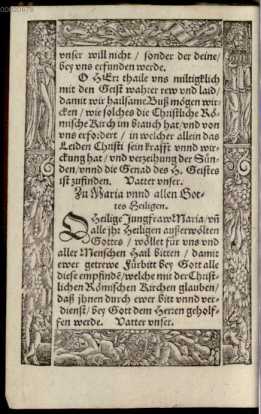 vnser will nicht / sonder der deine /
bey vns erfunden werde.
O HErr thaile vns miltigklich
mit den Geist wahrer rew vnd laid /
damit wir hailsame Buß mögen wir-
cken / wie solches die Christliche Rö-
mische Kirch im brauch hat / vnd von
vns erfordert / in welcher allein das
Leiden Christi sein krafft vnnd wir-
ckung hat / vnd verzeihung der Sün-
den / vnnd die Genad des H. Geistes
ist zufinden. Vatter vnser.
Zu Maria vnnd allen Got-
tes Heiligen.
O Heilige Jungfraw Maria / vñ
alle jhr Heiligen außerwölten
Gottes / wöllet für vns vnd
aller Menschen Hail bitten / damit
ewer getrewe Fürbitt bey Gott alle
diese empfinde / welche mit der Christ-
lichen Römischen Kirchen glauben /
daß jhnen durch ewer bitt vnnd ver-
dienst / bey Gott dem Herren geholf-
fen werde. Vatter vnser.